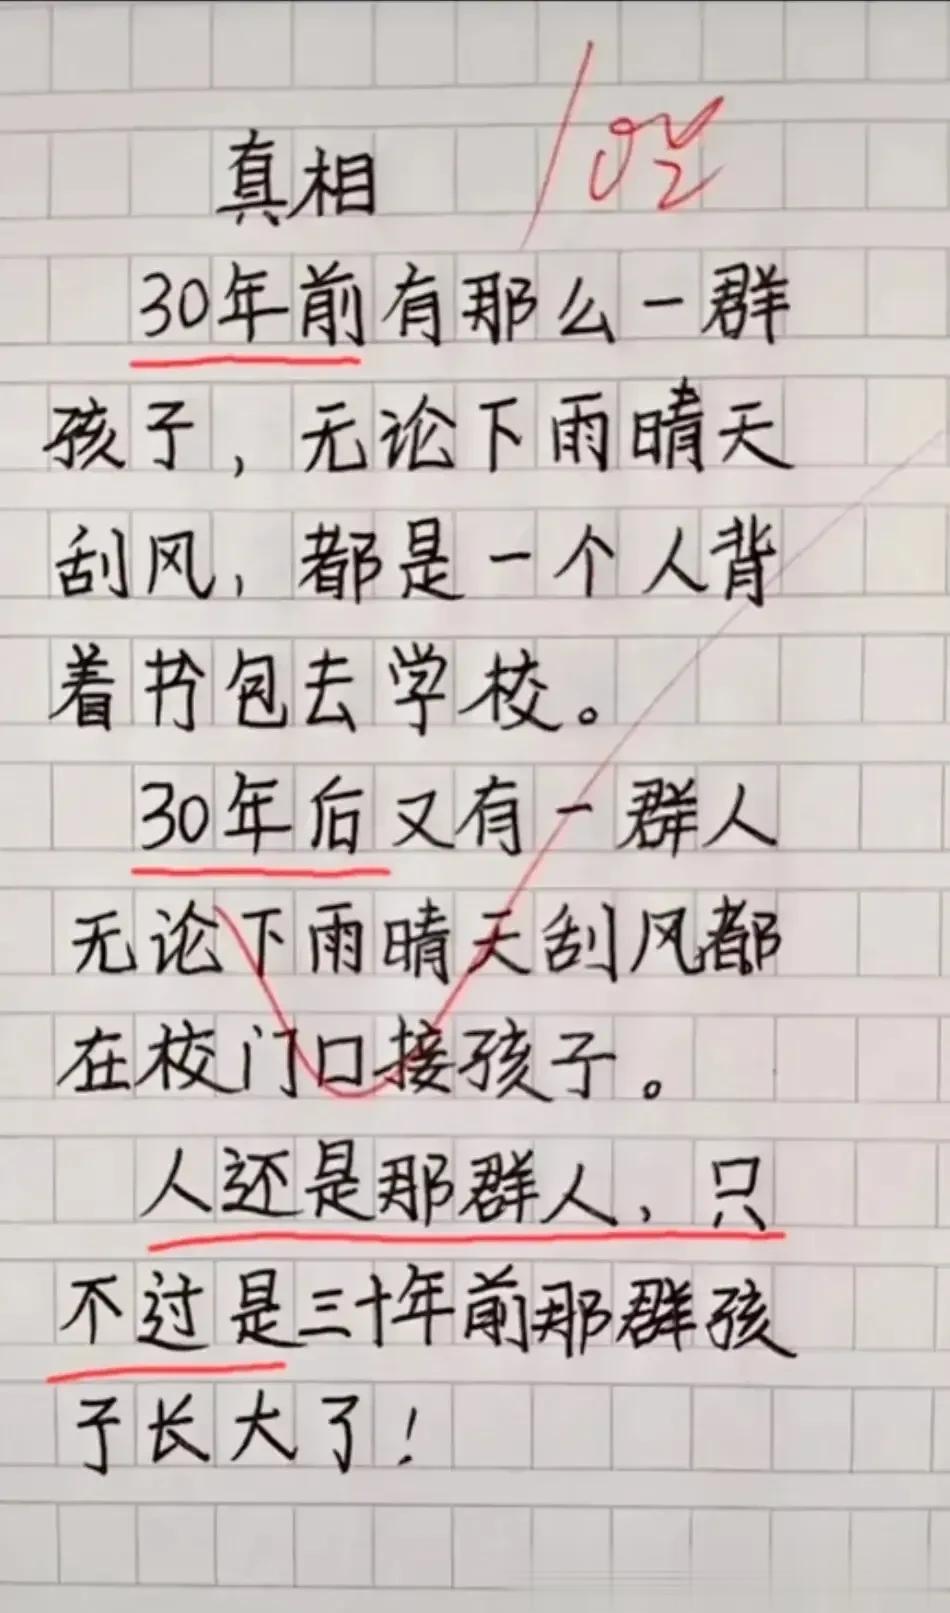 真相
30年前有那么一群
孩子，无论下雨晴天
刮风，都是一个人背
着书包去学校。
30年后又有一群人
无论下雨晴天刮风都
在校门口接孩子。
人还是那群人，只
不过是三十年前那群孩
子长大了！